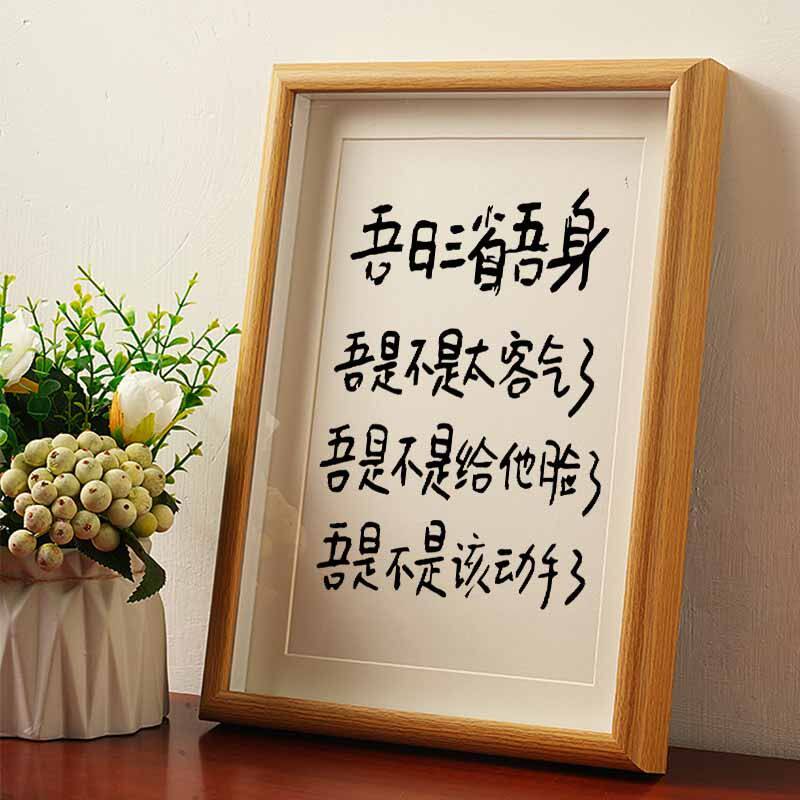 吾日三省吾身
吾是不是太客气了
吾是不是给他脸了
吾是不是该动手了